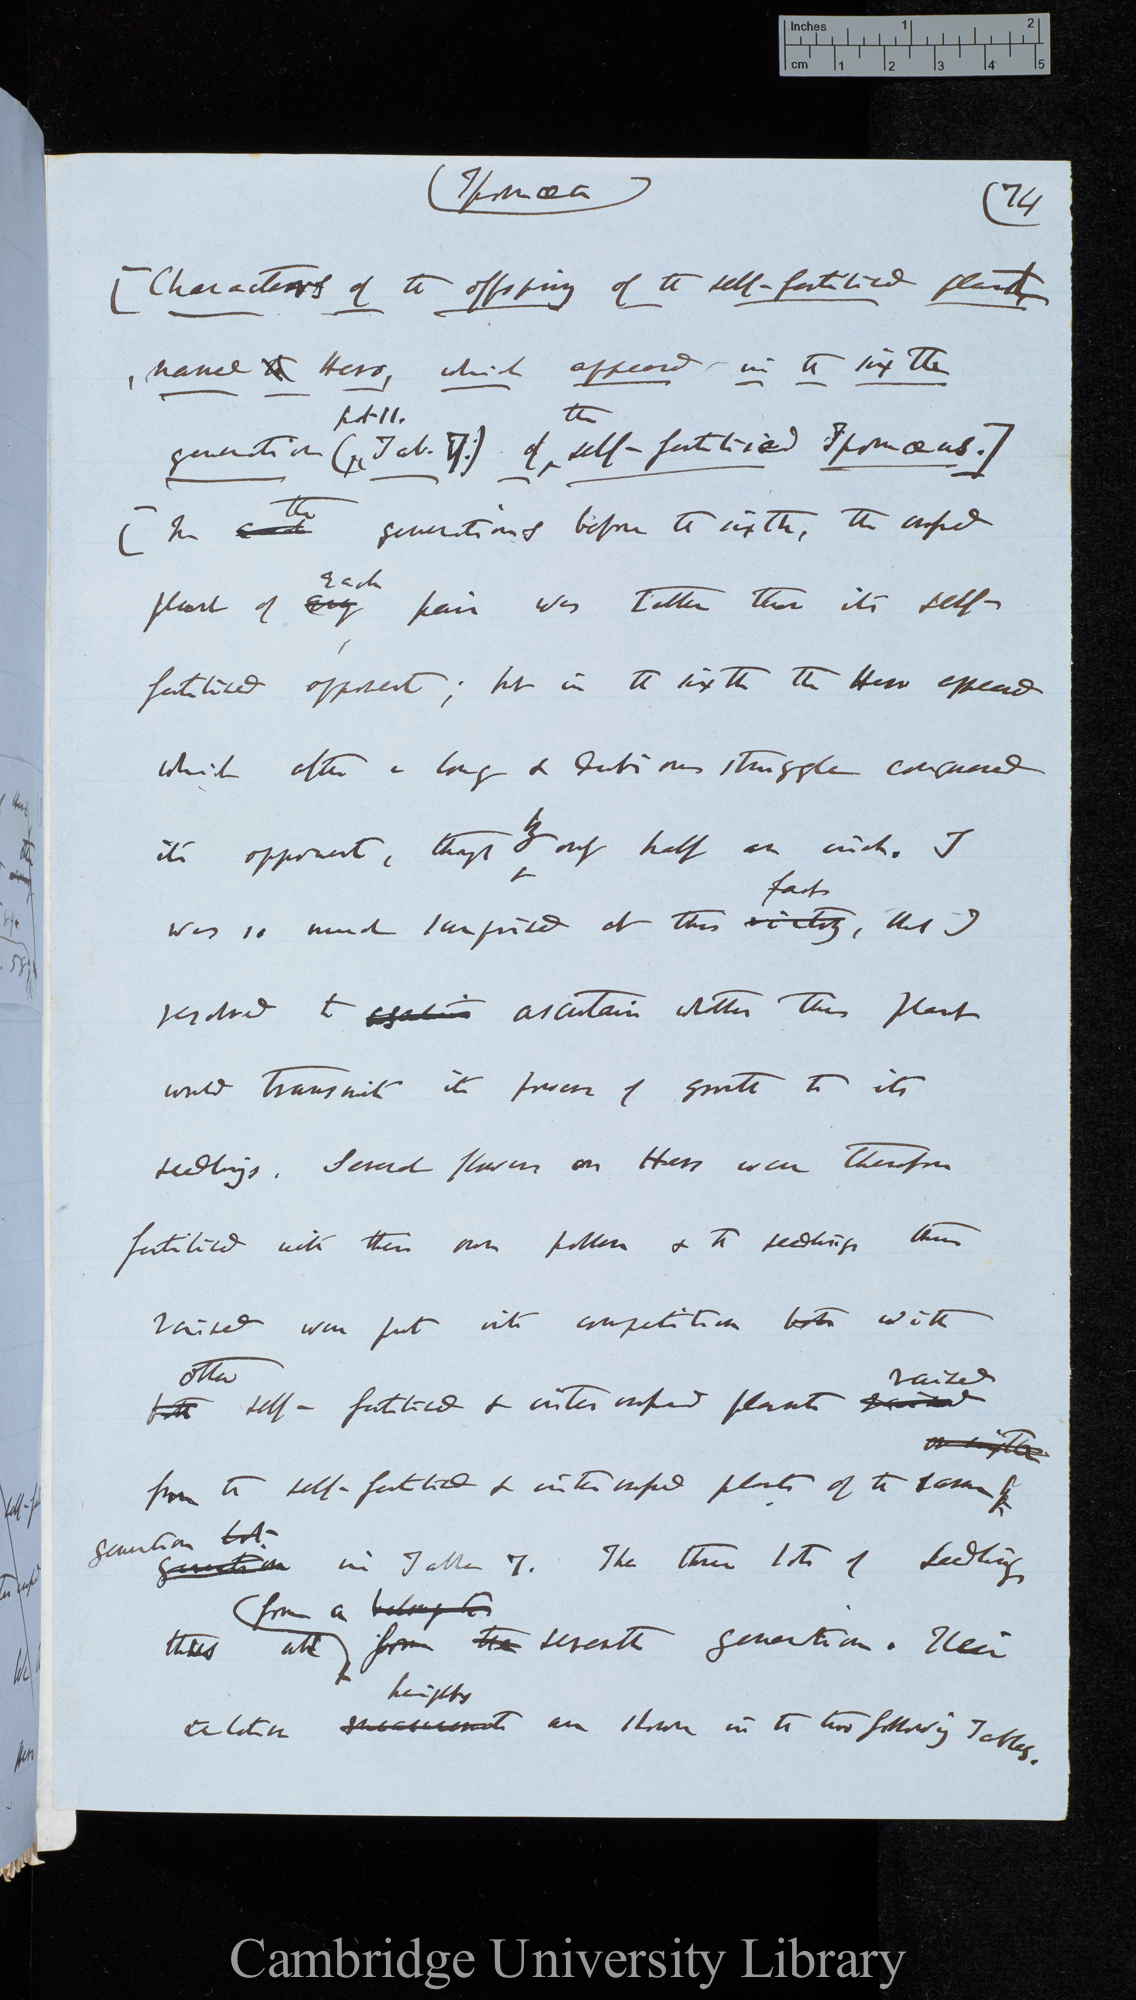 Inches 1 2
cm 1 2 3 4 5
(Ipomœa) (74
[Characters of the offspring of the self-fertilised plant,
named Hero, which appeared in the sixth
pot 11.
the
generation (Tab. VI.) of self-fertilised Ipomœas.]
the
[In each generations before the sixth, the crossed
each
plant of every pair was taller than its self-
fertilised opponent; but in the sixth the Hero appeared
which after a long & dubious struggle conquered
by
its opponent, though only half an inch. I
fact
was so much surprised at this victory, that I
resolved to ascertain whether this plant
would transmit its power of growth to its
seedlings. Several flowers on Hero were therefore
fertilised with their own pollen & the seedlings thus
raised were put into competition both with
other raised
both self-fertilised & intercrossed plants raised
from the self-fertilised & intercrossed plants of the same
generation
generation in Table 7. The three lots of seedlings
(from a belong to
thus all from the seventh generation. Their
heights
relative measurements are shown in the two following Tables.
Cambridge University Library